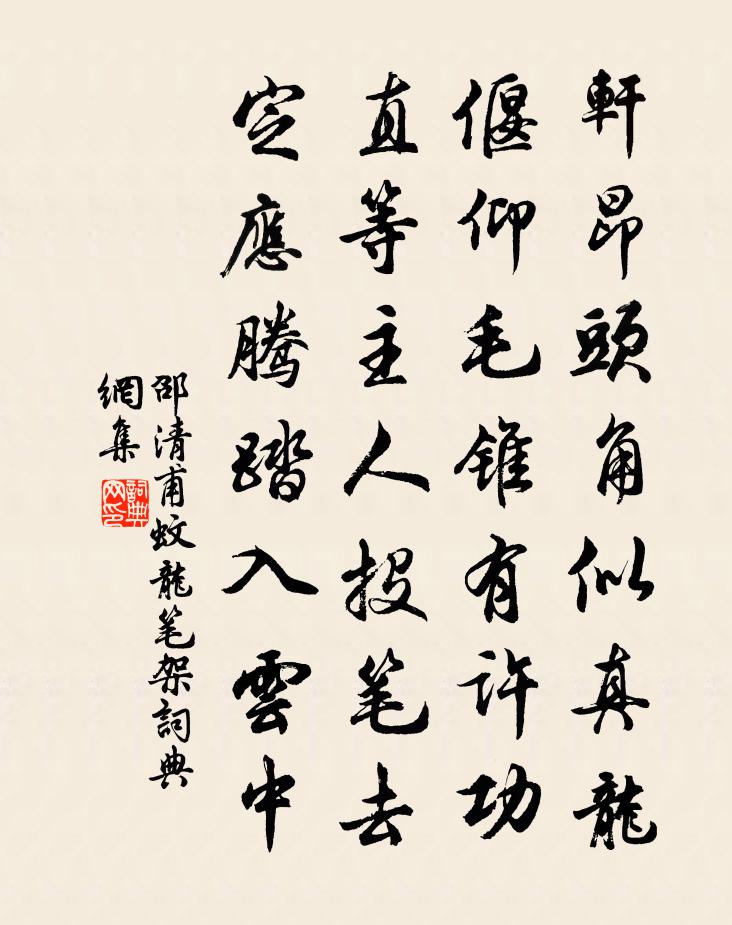 軒昂頭角似真龍
偃仰毛錐有許功
直等主人投笔去
定應騰踏入雲中
邵清甫蚊龍笔架詞典
網集
詞典网印